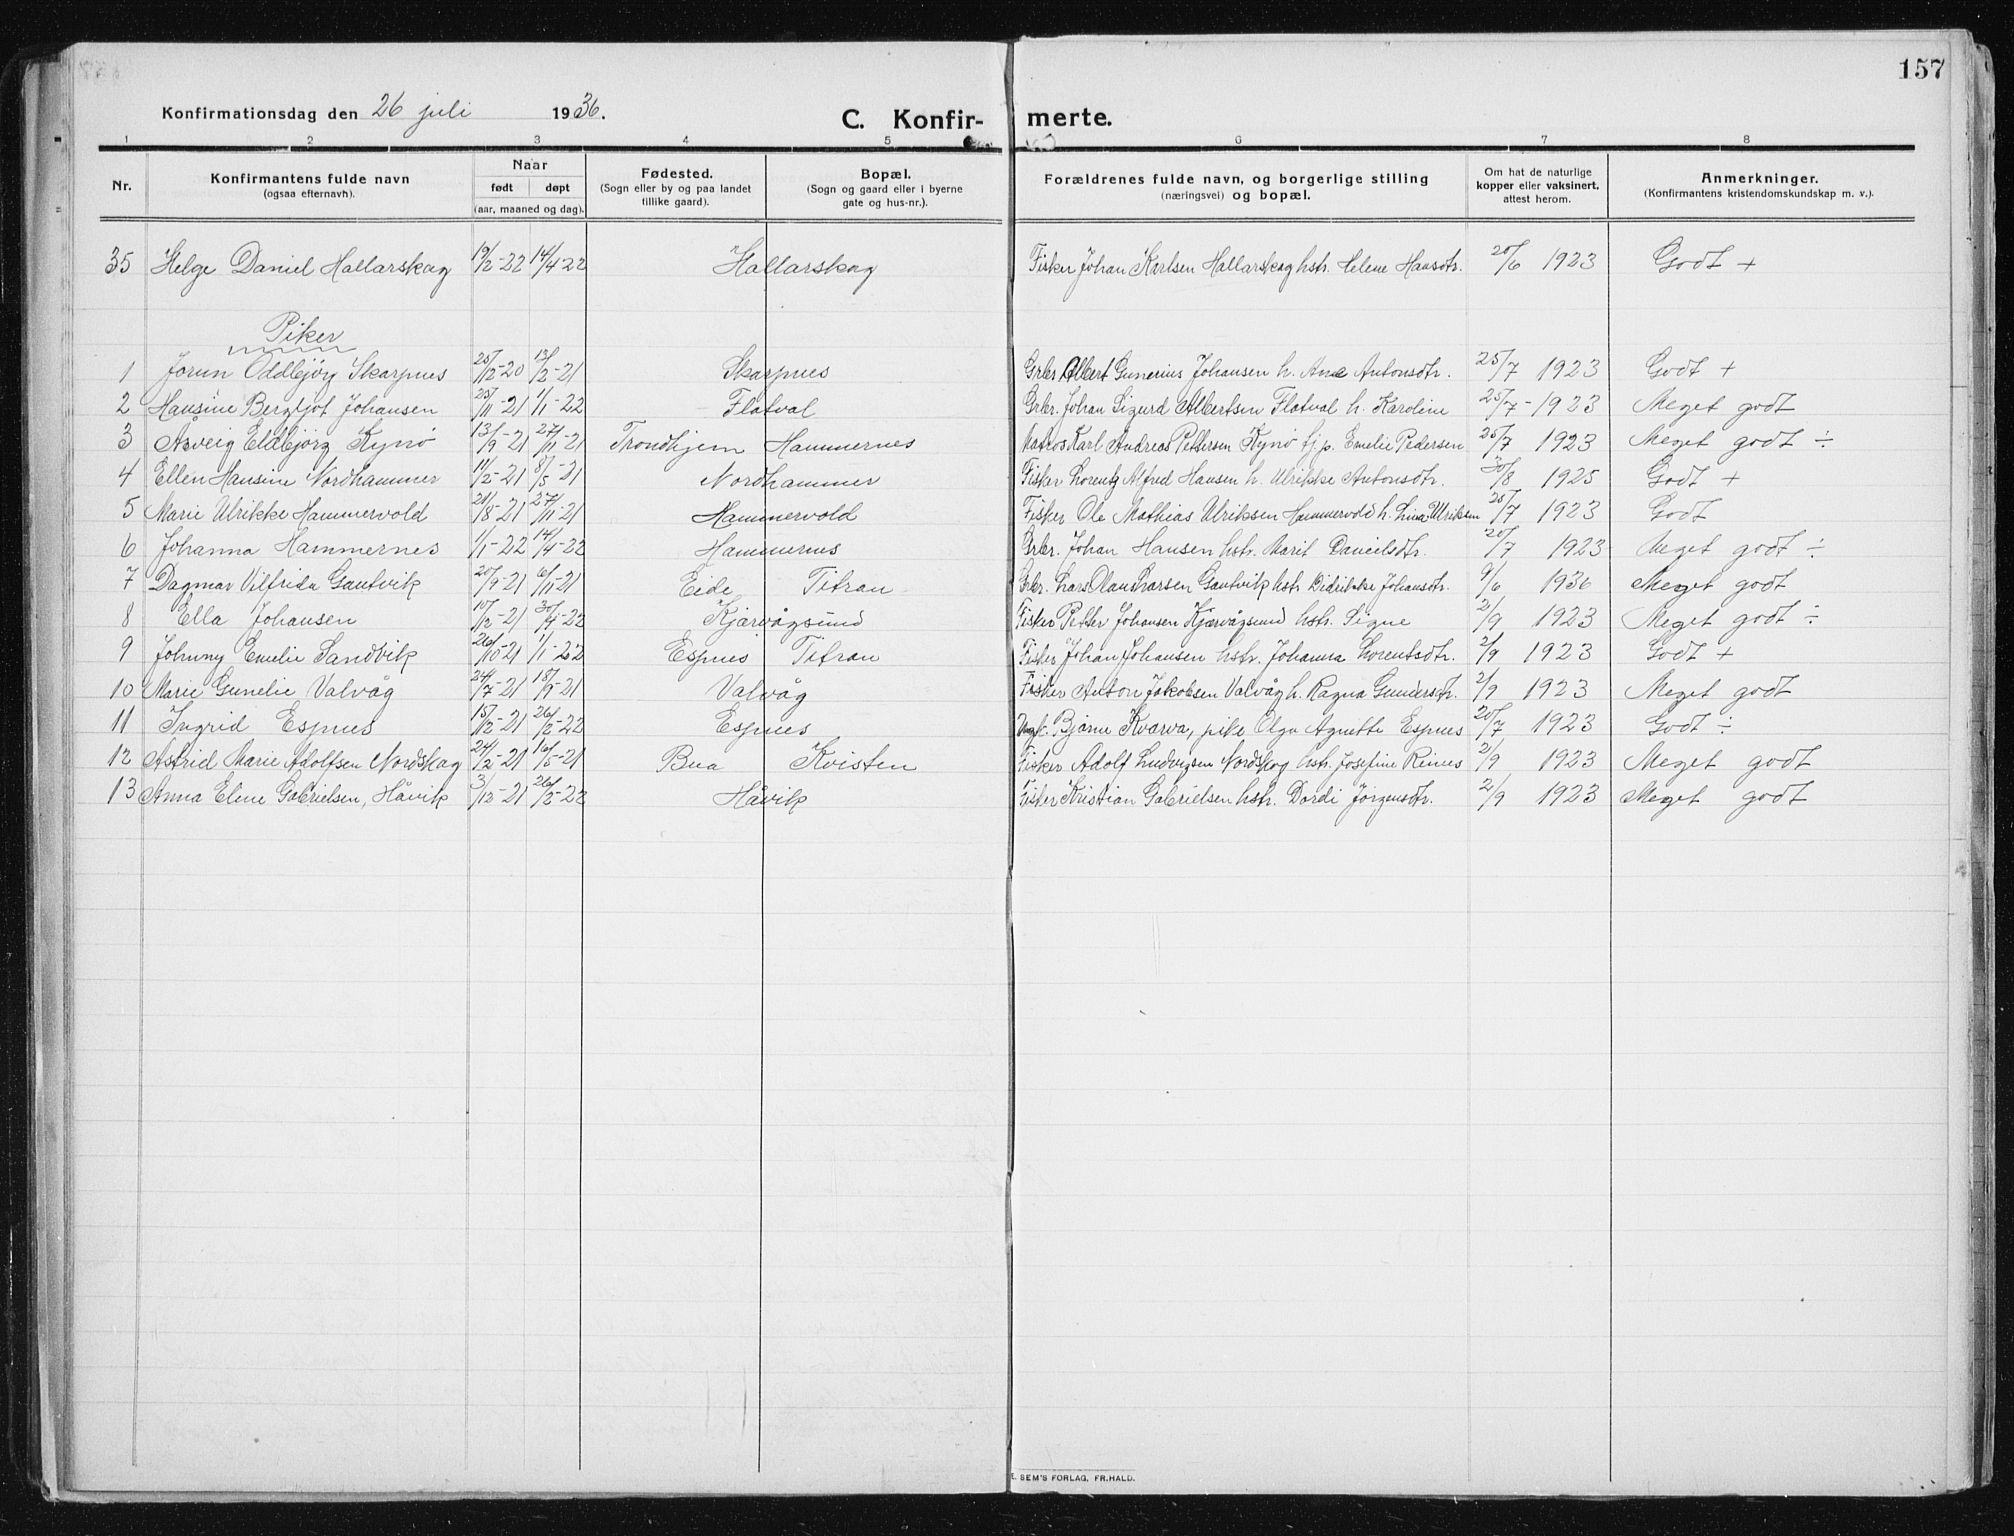 157
Konfirmationsdag den 26 juli 1936.
C. Konfirmerte.
1 2 3 4 5 6 7 8
Nr. Konfirmantens fulde navn (ogsaa efternavh). Naar født døpt (aar, maaned og dag). Fødested. (Sogn eller by og paa landet tillike gaard). Bopæl. (Sogn og gaard eller i byerne gate og hus-nr.). Forældrenes fulde navn, og borgerlige stilling (næringsvei) og bopæl. Om hat de naturlige kopper eller vaksinert, attest herom. Anmerkninger. (Konfirmantens kristendomskundskap m. v.).
35 Helge Daniel Hallarskag 19/2-22 14/4 22 Hallarskag Fisker Johan Karlsen Hallarskag hstr. Helene Hansdtr. 20/6 1923 Godt +
Piker
1 Jorun Oddbjørg Skarpnes 25/12-20 13/2-21 Skarpnes Grbr. Albert Gunerius Johansen h. Ane Antonsdtr. 25/7 1923 Godt +
2 Hansine Bergljot Johansen 25/11-21 1/1-22 Flatval Grbr. Johan Sigurd Albertsen Flatval h. Karoline 25/7-1923 Meget godt
3 Asveig Eldbjørg Kynø 13/9-21 27/12-21 Trondhjem Hammernes Karl Andreas Pettersen Kynø fj. p. Emelie Pedersen 25/7 1923 Meget godt ÷
4 Ellen Hansine Nordhammer 11/2-21 8/5-21 Nordhammer Fisker Lorentz Alfred Hansen h. Ulrikke Antonsdtr. 30/8 1925 Godt +
5 Marie Ulrikke Hammervold 21/8-21 27/11-21 Hammervold Fisker Ole Mathias Ulriksen Hammervold h. Lina Ulriksen 25/7 1923 Godt
6 Johanna Hammernes 1/1-22 14/4-22 Hammernes Grbr. Johan Hansen hstr. Marit Danielsdtr. 20/7 1923 Meget godt ÷
7 Dagmar Vilfrida Gautvik 20/9-21 6/11-21 Eide Titran Grbr. Lars Olaus Larsen Gautvik hstr. Didrikke Johansdtr. 9/6 1936 Meget godt
8 Ella Johansen 10/12-21 30/4-22 Kjærvågsund Fisker Petter Johansen Kjærvågsund hstr. Signe 2/9 1923 Meget godt ÷
9 Johnny Emelie Sandvik 26/10-21 1/1-22 Espnes Titran Fisker Johan Johansen hstr. Johanna Lorentsdtr. 2/9 1923 Godt +
10 Marie Gunelie Valvåg 24/7-21 18/9-21 Valvåg Fisker Anton Jakobsen Valvåg h. Ragna Gundersdtr. 2/9 1923 Meget godt
11 Ingrid Espnes 15/12-21 26/2-22 Espnes Ungk. Bjarne Kvarva, pike Olga Agnette Espnes 20/7 1923 Godt ÷
12 Astrid Marie Adolfsen Nordskag 24/2-21 16/5-21 Bua Kvisten Fisker Adolf Ludvigsen Nordskag hstr. Josefine Rines 2/9 1923 Meget godt
13 Anna Elene Gabrielsen, Håvik 3/12-21 26/2-22 Håvik Fisker Kristian Gabrielsen hstr. Dordi Jørgensdtr. 2/9 1923 Meget godt
E. SEM'S FORLAG, FR.HALD.